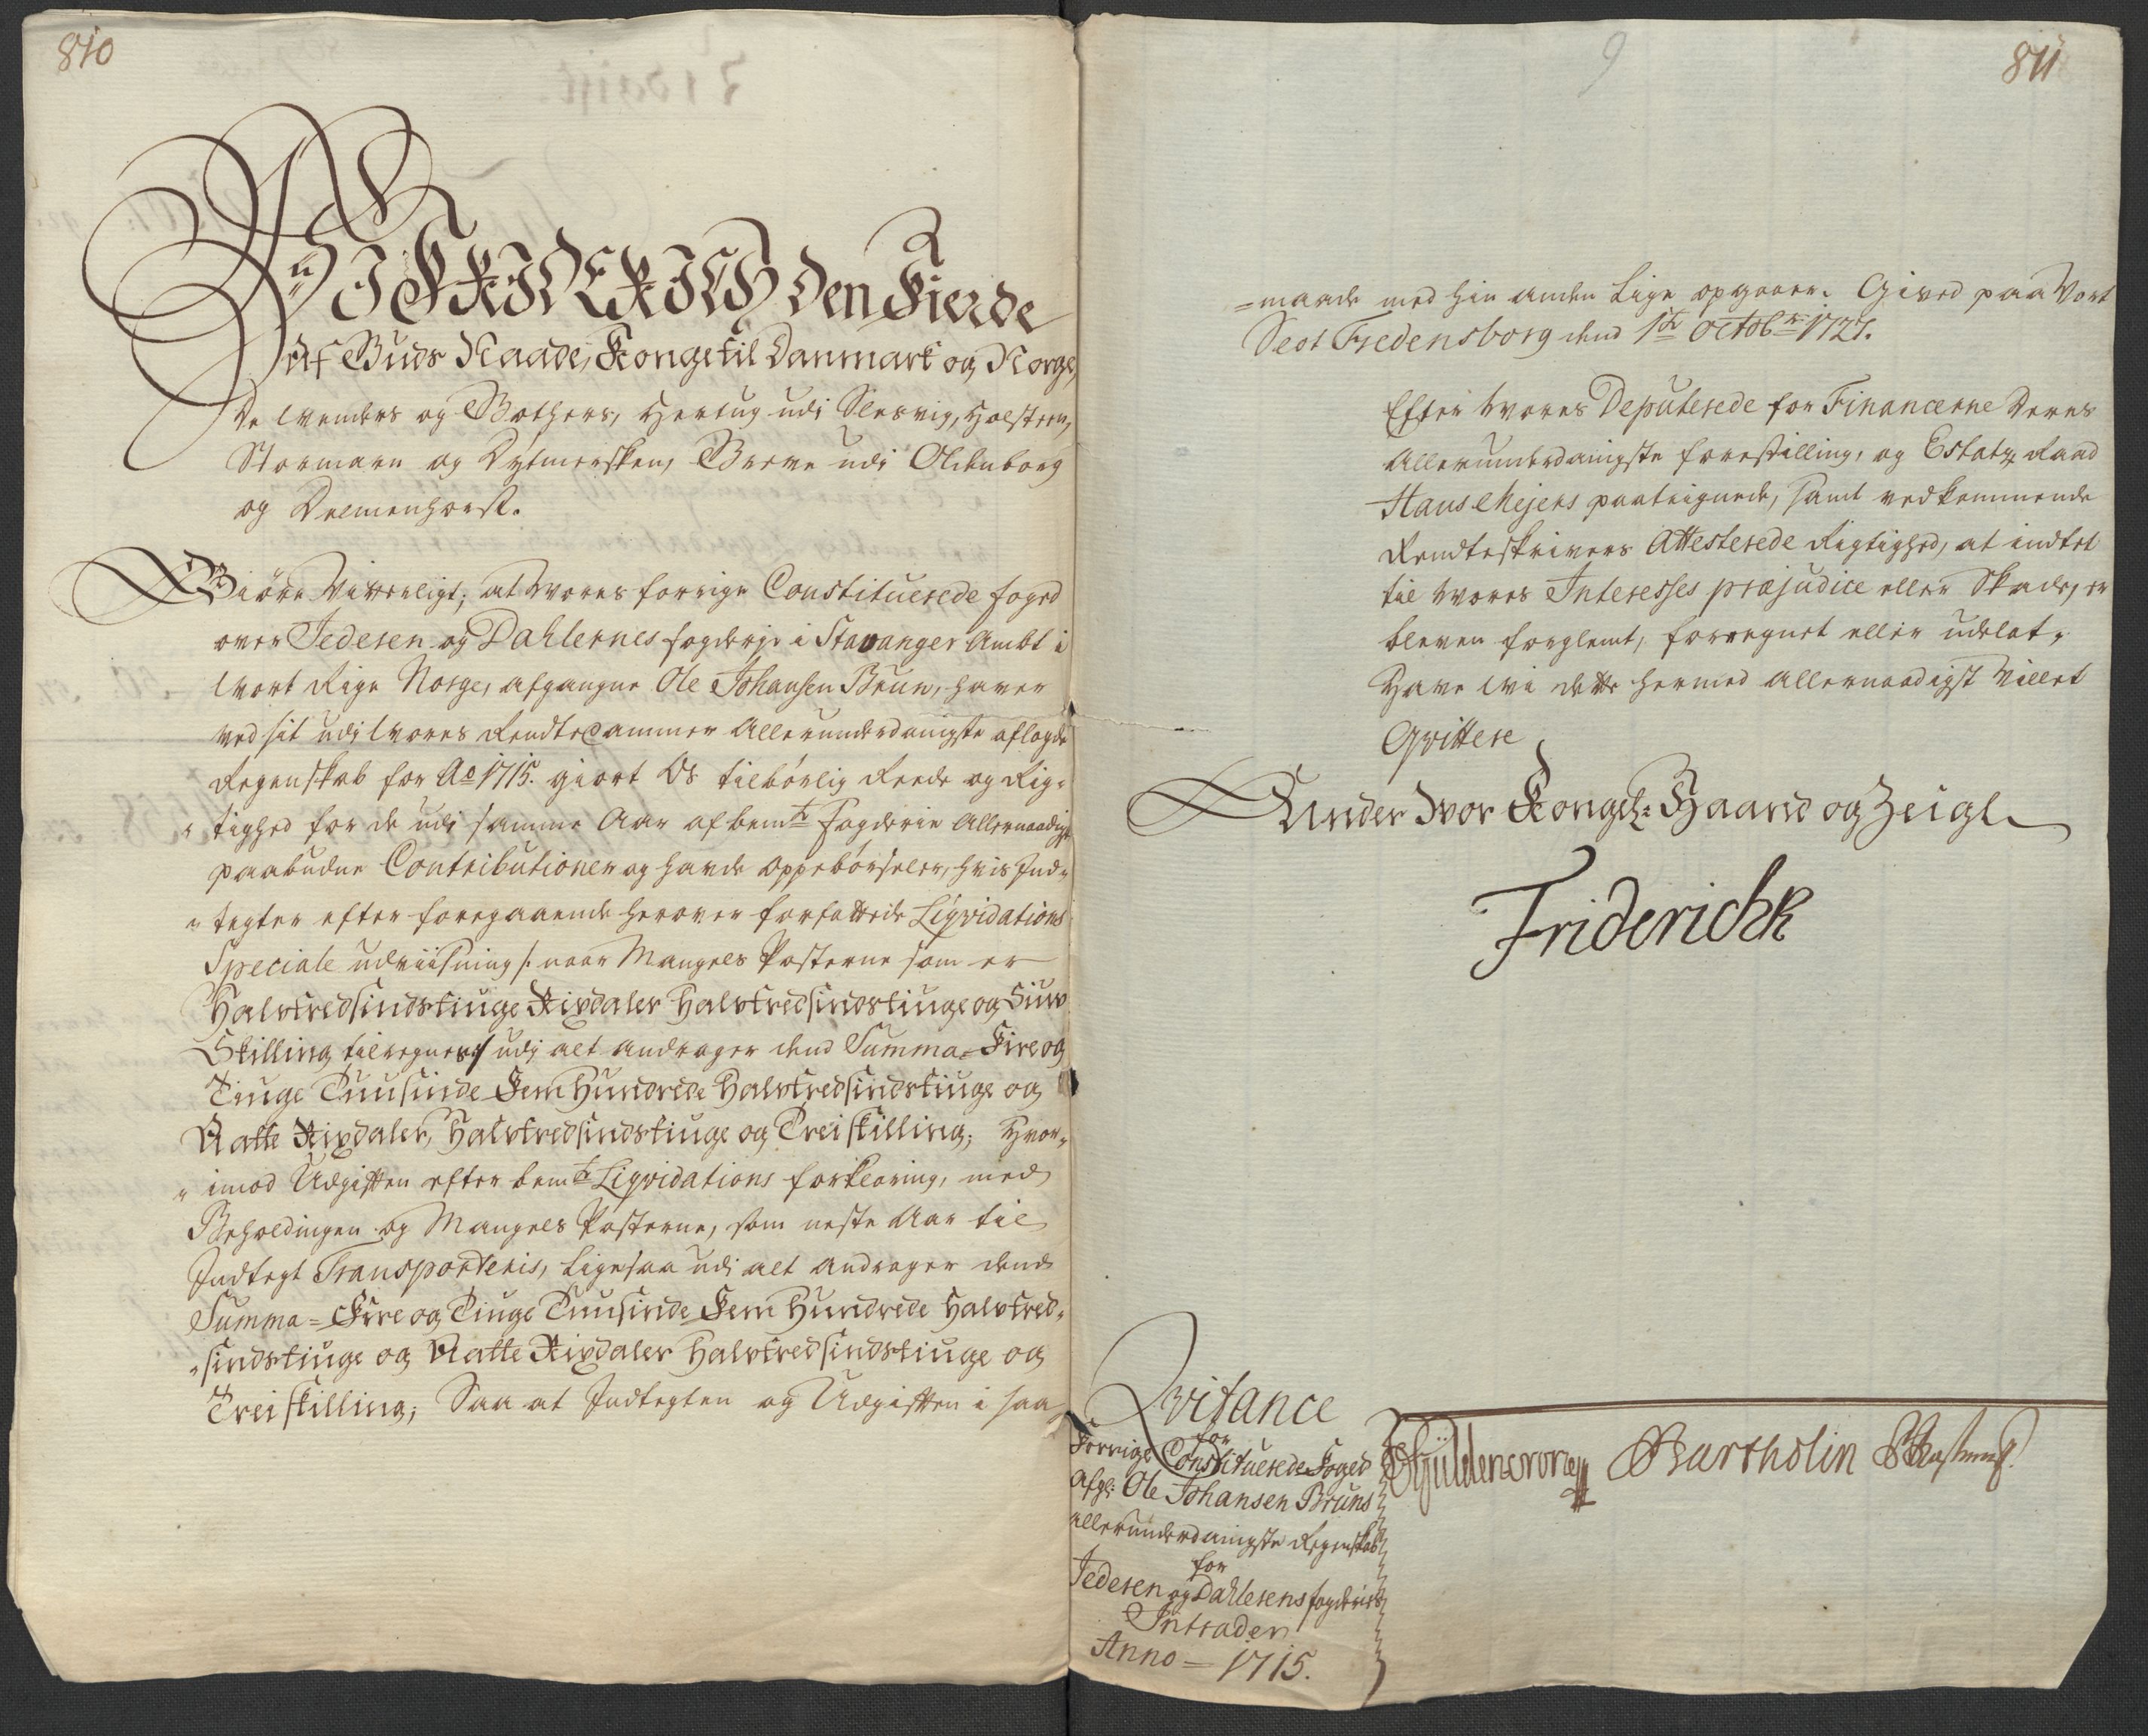 810
WI FRIDERICH Den Fierde
Af Guds Naade, Konge til Danmark og Norge,
De Wenders og Gothers, Hertug udi Slesvig, Holsteen,
Stormarn og Dytmersken, Greve udi Oldenborg
og Delmenhorst.
Giøre Vitterligt; at Wores forrige Constituerede foged
over Jederen og Dahlernes fogderje i Stavanger Ambt i
Wort Rige Norge, afgangne Ole Johansen Brun, haver
ved sit udi Wores RendteCammer Allerunderdanigste aflagde
Regenskab for Ao 1715. giort Os tilbørlig Reede og Rig-
-tighed for de udi samme Aar af bemte Fogderie Allernaadigst
paabudne Contributioner og havde Oppebørseler, hvis Ind-
-tegter efter foregaaende herover forfattede Liqvidations
Speciale udviisning /: naar Mangels Posterne som er
Halvtredsindstiuge Rixdaler Halvtredsindstiuge og Siuv
Skilling tilregnes :/ udj alt andrager dend Summa = Fire og
Tiuge Tuusinde Fem Hundrede Halvtredsindstiuge og
Aatte Rixdaler, Halvtredsindstiuge og Trei skilling; Hvor-
-imod Udgiften efter bemte Liqvidations forklaring, med
Beholdingen og Mangels Posterne, som neste Aar til
Indtegt Transporteris, Ligesaa udi alt andrager dend
Summa = Fire og Tiuge Tuusinde Fem Hundrede Halvtred-
-sindstiuge og Aatte Rixdaler Halvtredsindstiuge og
Trei skilling; Saa at Indtegten og Udgiften i saa
9
811
=maade med hin anden Lige opgaaer. Gived paa Vort
Slot Fredensborg dend 1te Octobr: 1727.
Efter Wores Deputerede for Financerne Deres
Allerunderdanigste forestilling, og Estatz Raad
Hans Mejers paategnede, samt vedkommende
Rendteskrivers Attesterede Rigtighed, at indtet
til Wores Interesses præjudice eller Skade, er
bleven forglemt, forregnet eller udelat,
Have Wi dette hermed allernaadigst Villet
Qvittere
Under Wor Kongel: Haand og Zeigl
Friderich R
Qvitance
for
Forrige Constituerede Foged
Afg: Ole Johansen Bruns
allerunderdanigste Regenskab
for
Jederen og Dahlerens fogderies
Intrader
Anno = 1715.
Gyldencrone Bartholin